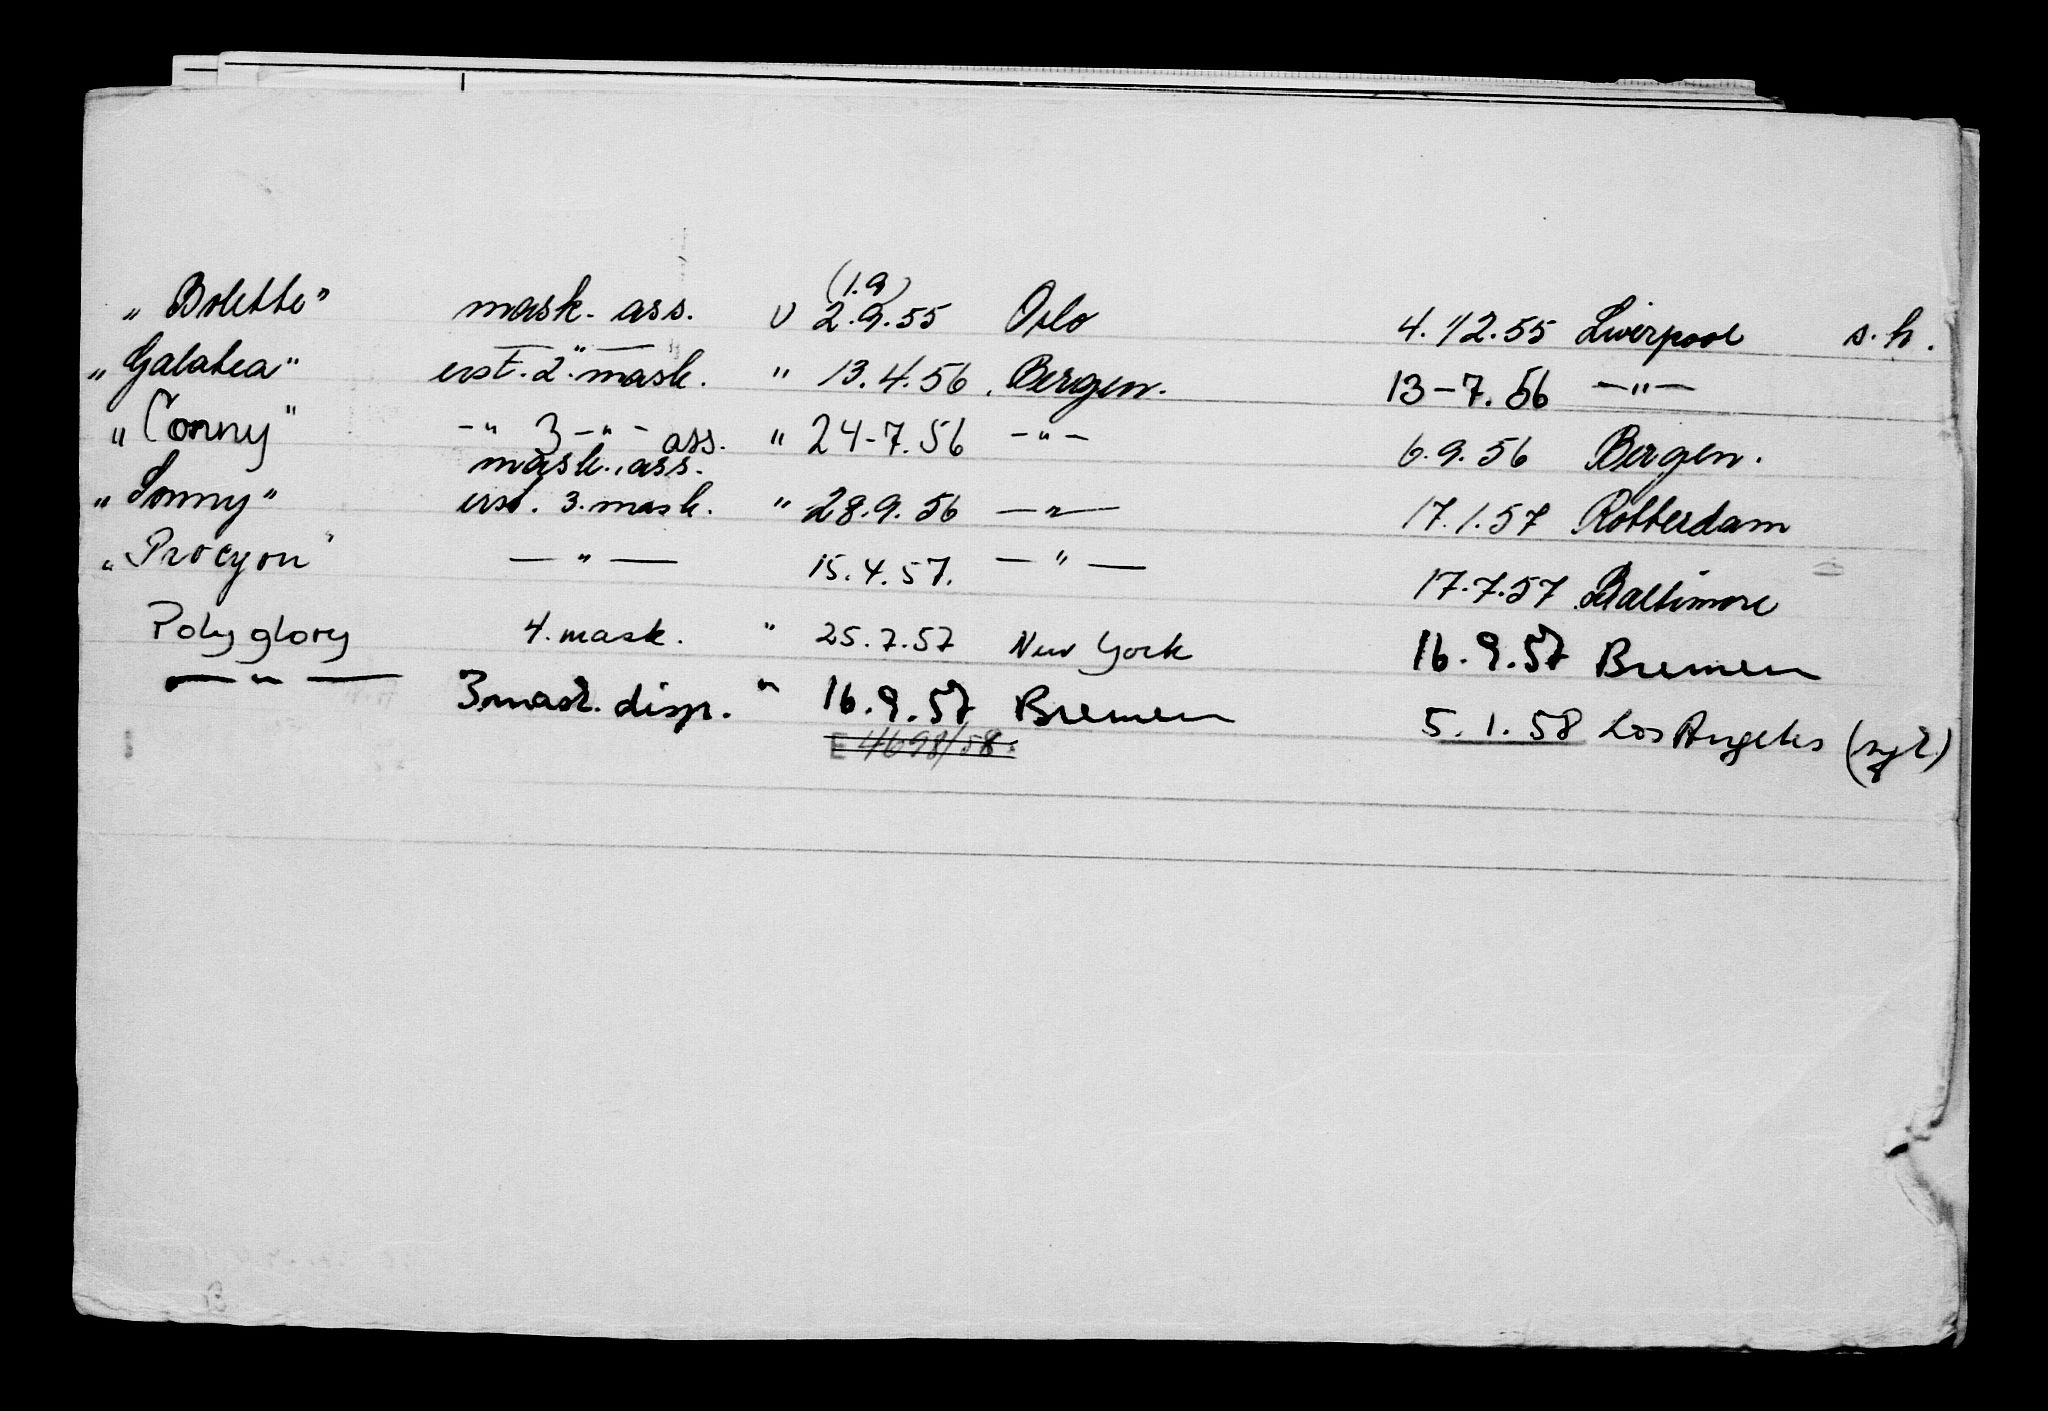 (1.9)
„Bolette" mask. ass. U 2.9.55 Oslo 4.12.55 Liverpool s.h.
— " —
„Galatea" erst. 2. mask. " 13.4.56. Bergen. 13-7.56 —"—
„Conny" -"- 3 -"- ass. " 24-7.56 -"- 6.9.56 Bergen.
mask. ass.
„Sonny" erst. 3. mask. " 28.9.56 —"— 17.1.57 Rotterdam
„Procyon" — " — 15.4.57. — " — 17.7.57 Baltimore
Polyglory 4. mask. " 25.7.57 New York 16.9.57 Bremen
— " — 3 mask. disp. " 16.9.57 Bremen 5.1.58 Los Angeles (syk)
E 4698/58